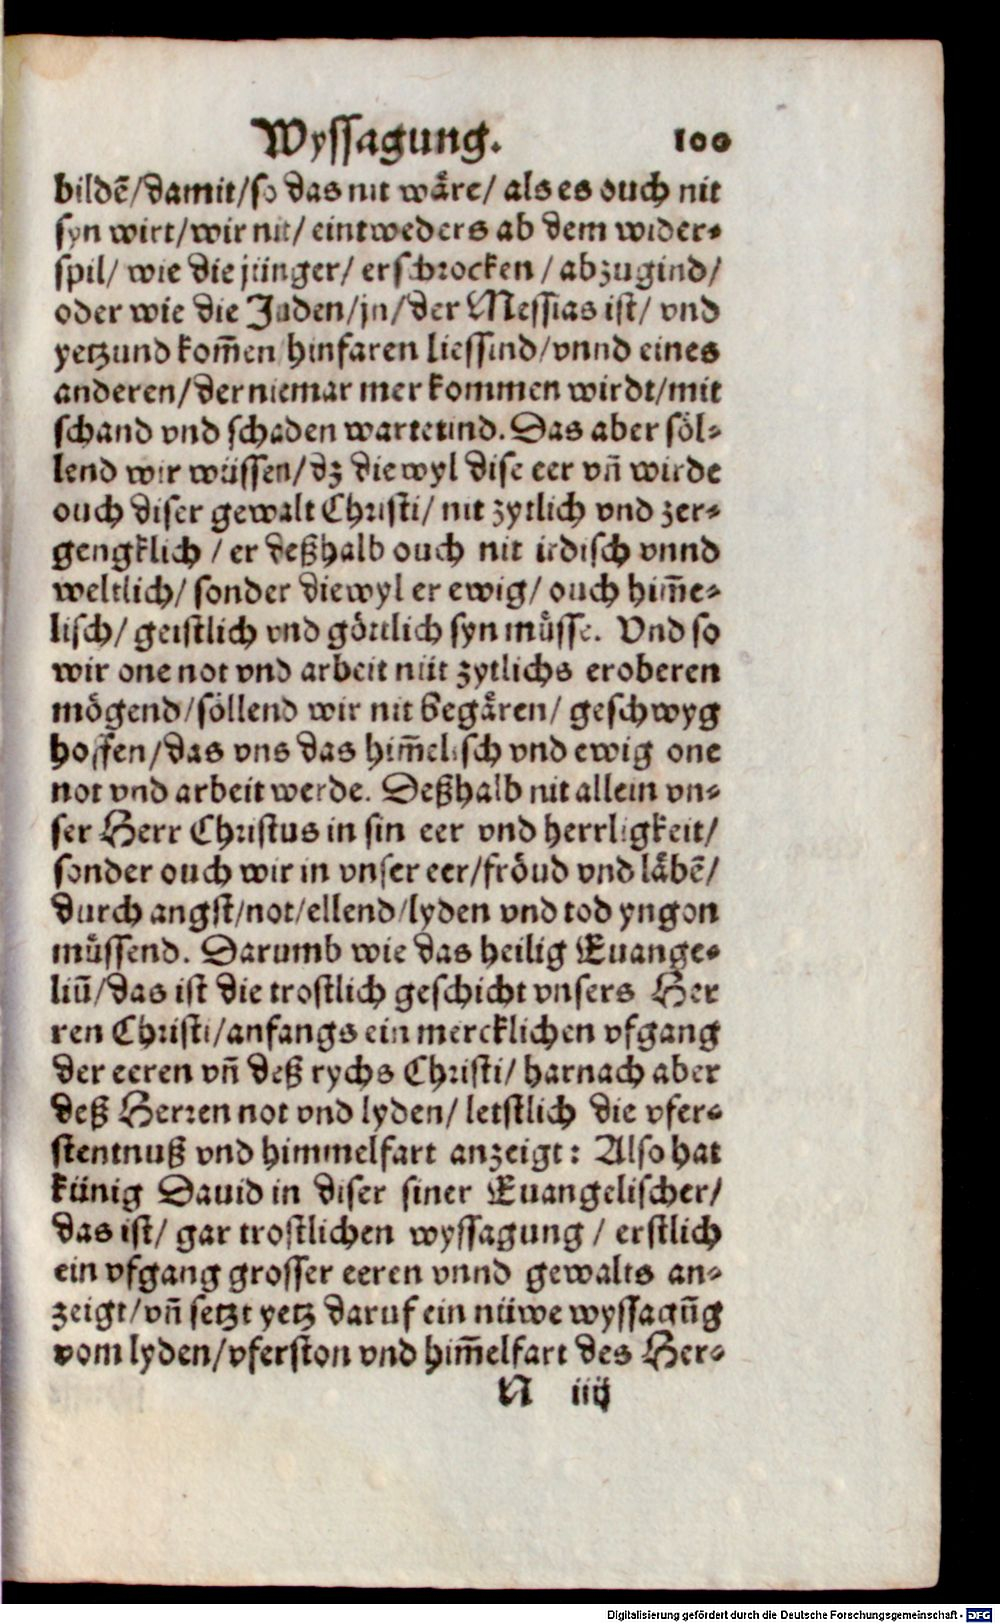 Wyssagung. 100
bildē/damit/so das nit wåre/ als es ouch nit
syn wirt/wir nit/ eintweders ab dem wider-
spil/ wie die jünger/ erschrocken / abzugind/
oder wie die Juden/jn/der Messias ist/ vnd
yetzund kom̄en hinfaren liessind/vnnd eines
anderen/der niemar mer kommen wirdt/mit
schand vnd schaden wartetind. Das aber söl-
lend wir wüssen/dz die wyl dise eer vn̄ wirde
ouch diser gewalt Christi/ nit zytlich vnd zer-
gengklich / er deßhalb ouch nit irdisch vnnd
weltlich/ sonder diewyl er ewig/ ouch him̄e-
lisch/ geistlich vnd göttlich syn müsse. Vnd so
wir one not vnd arbeit nüt zytlichs eroberen
mögend/söllend wir nit begåren/ geschwyg
hoffen/das vns das him̄elisch vnd ewig one
not vnd arbeit werde. Deßhalb nit allein vn-
ser Herr Christus in sin eer vnd herrligkeit/
sonder ouch wir in vnser eer/fröud vnd låbē/
durch angst/not/ellend/lyden vnd tod yngon
müssend. Darumb wie das heilig Euange-
liū/das ist die trostlich geschicht vnsers Her
ren Christi/anfangs ein mercklichen vfgang
der eeren vn̄ deß rychs Christi/ harnach aber
deß Herren not vnd lyden/ letstlich die vfer-
stentnuß vnd himmelfart anzeigt: Also hat
künig Dauid in diser siner Euangelischer/
das ist/ gar trostlichen wyssagung / erstlich
ein vfgang grosser eeren vnnd gewalts an-
zeigt/vn̄ setzt yetz daruf ein nüwe wyssagūg
vom lyden/vferston vnd him̄elfart des Her-
N iiij
Digitalisierung gefördert durch die Deutsche Forschungsgemeinschaft - DFG